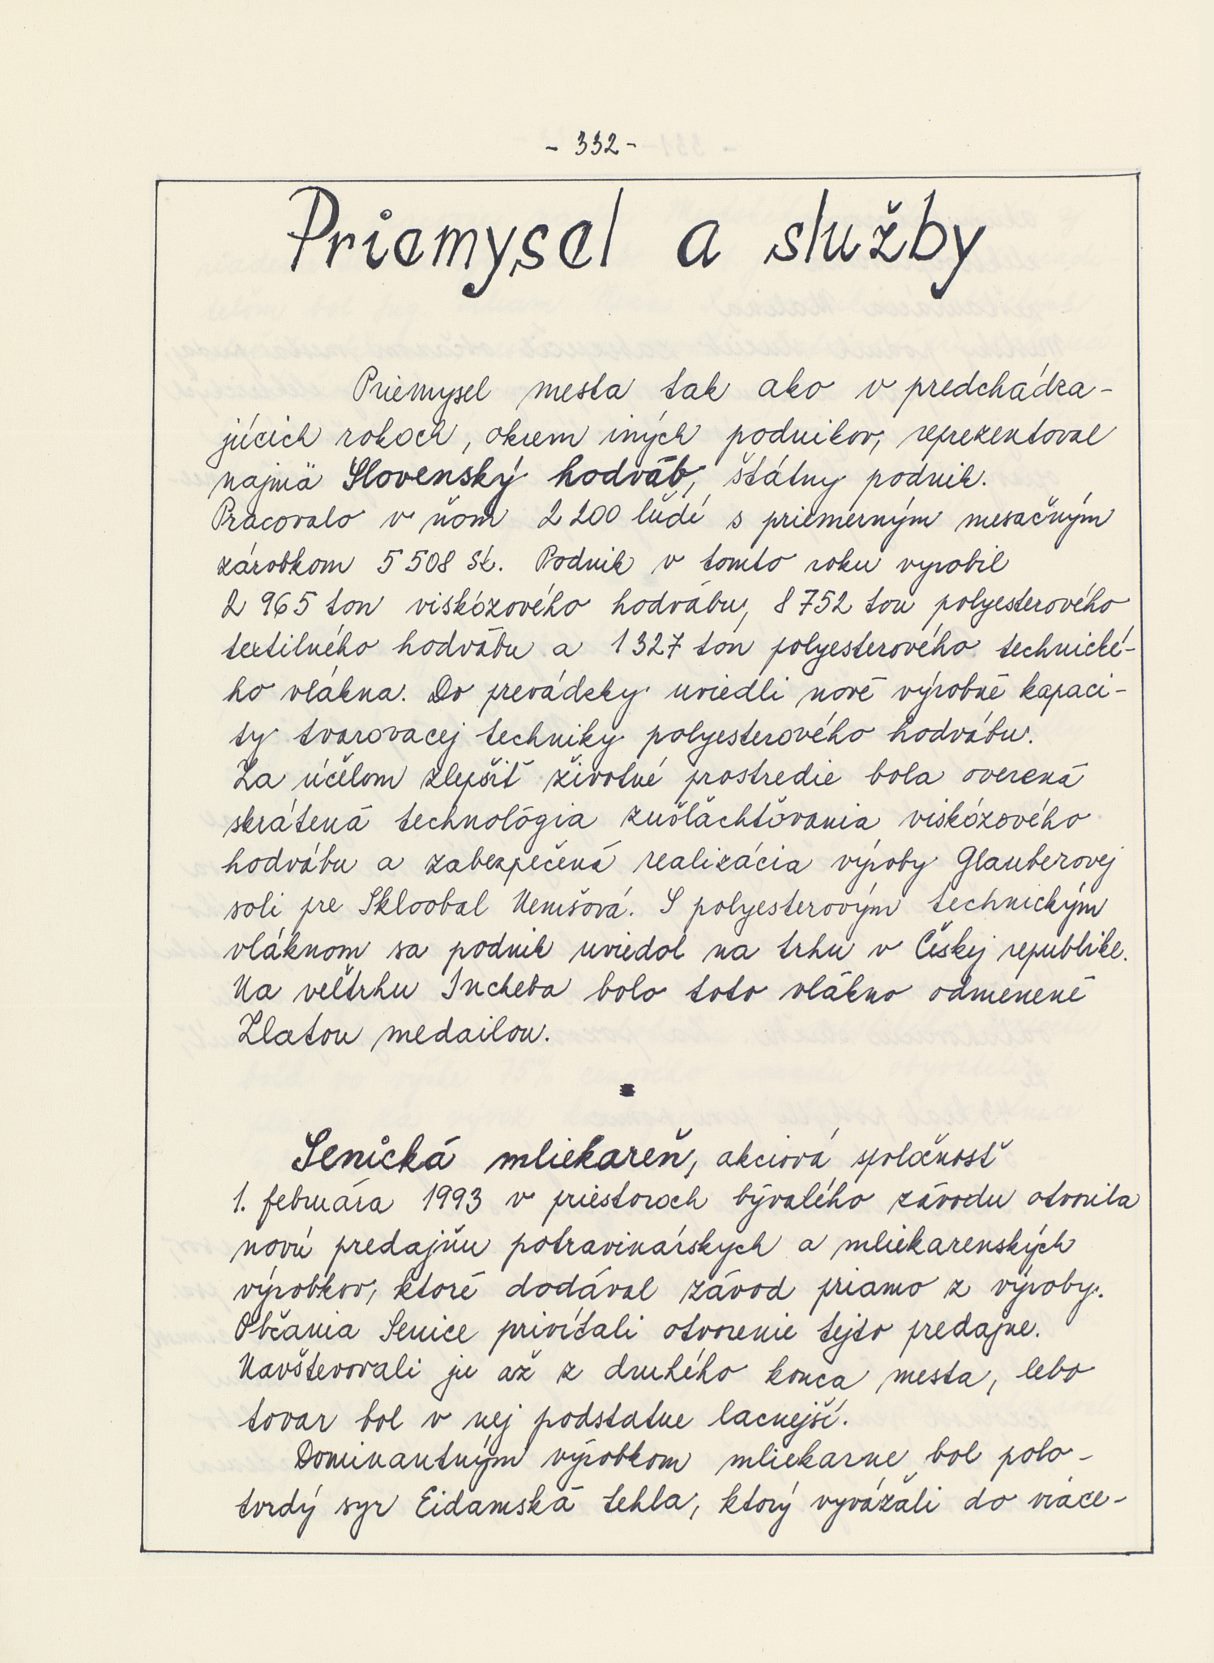 - 332 -
Priemysel a služby
Priemysel mesta tak ako v predchádza-
júcich rokoch, okrem iných podnikov, reprezentoval
najmä Slovenský hodváb, štátny podnik.
Pracovalo v ňom 2 200 ľudí s priemerným mesačným
zárobkom 5 508 Sk. Podnik v tomto roku vyrobil
2 965 ton viskózového hodvábu, 8 752 ton polyesterového
textilného hodvábu a 1 327 ton polyesterového technické-
ho vlákna. Do prevádzky uviedli nové výrobné kapaci-
ty tvarovacej techniky polyesterového hodvábu.
Za účelom zlepšiť životné prostredie bola overená
skrátená technológia zušľachťovania viskózového
hodvábu a zabezpečená realizácia výroby Glauberovej
soli pre Skloobal Nemšová. S polyesterovým technickým
vláknom sa podnik uviedol na trhu v Českej republike.
Na veľtrhu Incheba bolo toto vlákno odmenené
Zlatou medailou.
Senická mliekareň, akciová spoločnosť
1. februára 1993 v priestoroch bývalého závodu otvorila
novú predajňu potravinárskych a mliekarenských
výrobkov, ktoré dodával závod priamo z výroby.
Občania Senice privítali otvorenie tejto predajne.
Navštevovali ju až z druhého konca mesta, lebo
tovar bol v nej podstatne lacnejší.
Dominantným výrobkom mliekarne bol polo-
tvrdý syr Eidamská tehla, ktorý vyvážali do viace-